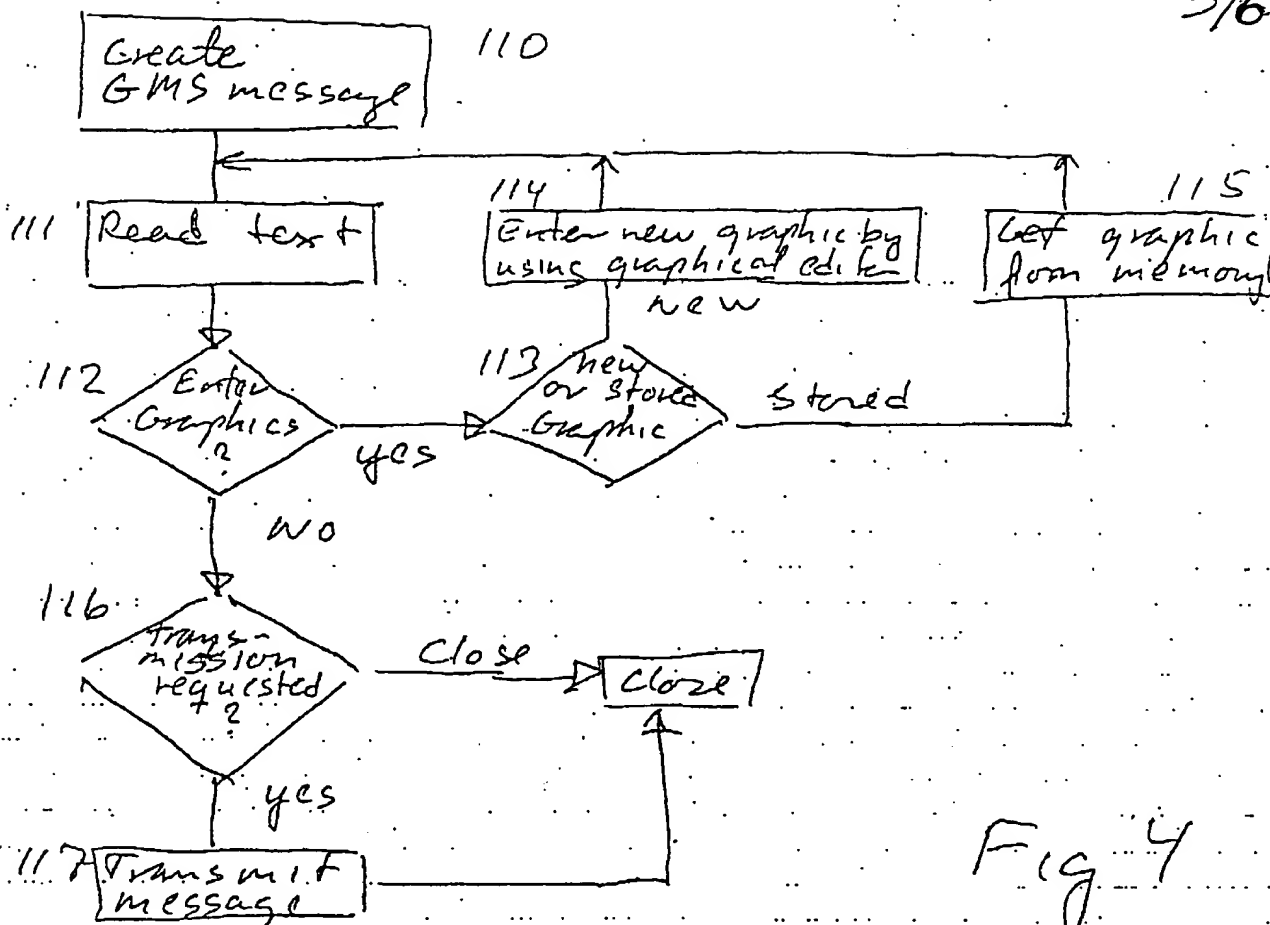 3/6
110
Create
GMS message
114
115
111
Read text
Enter new graphic by
using graphical editor
Get graphic
from memory
new
112
Enter
Graphics
?
yes
113
new
or stored
Graphic
stored
NO
116
Trans-
mission
requested
?
Close
Close
yes
117
Transmit
message
Fig 4